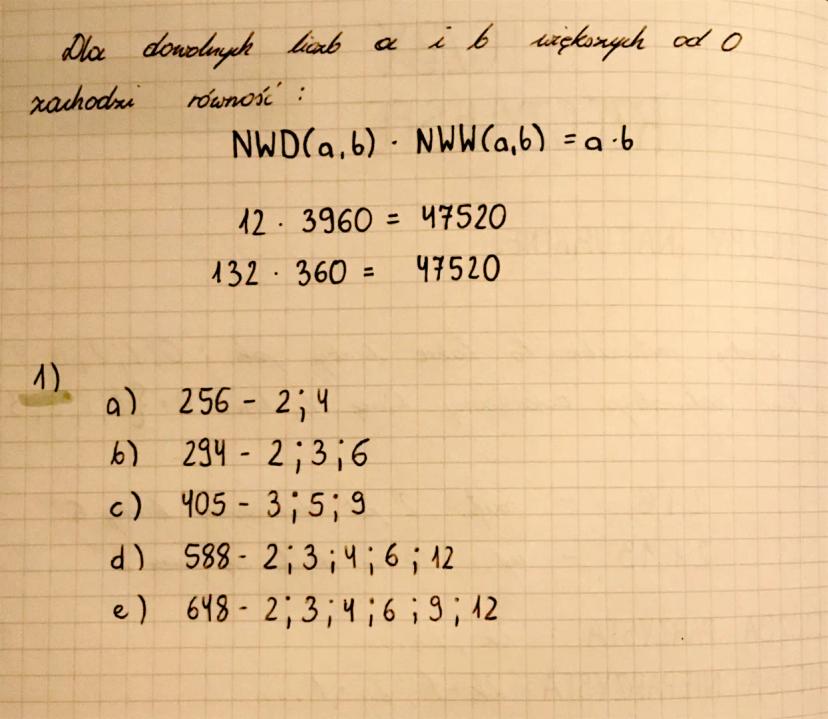 Dla dowolnych liczb a i b większych od 0
zachodzi równość:
NWD(a,b) · NWW(a,b) = a·b
12 · 3960 = 47520
132 · 360 = 47520
1)
a) 256 - 2; 4
b) 294 - 2; 3; 6
c) 405 - 3; 5; 9
d) 588 - 2; 3; 4; 6; 12
e) 648 - 2; 3; 4; 6; 9; 12